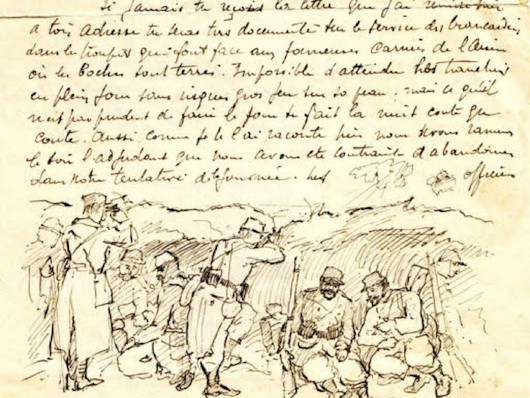 Si jamais tu reçois la lettre que j'ai
à ton adresse tu seras très documenté sur le service des brancardiers
dans les troupes qui font face aux fameuses Carrières de l'Aisne
où les Boches sont terrés. Impossible d'atteindre tranchées
en plein jour sans risquer gros sur sa peau: mais ce qu'il
n'est pas prudent de faire le jour se fait la nuit coûte que
coûte. Aussi comme je te l'ai raconté hier nous avons ramené
le soir l'adjudant que nous avons été contraint d'abandonner
dans notre tentative Les officiers